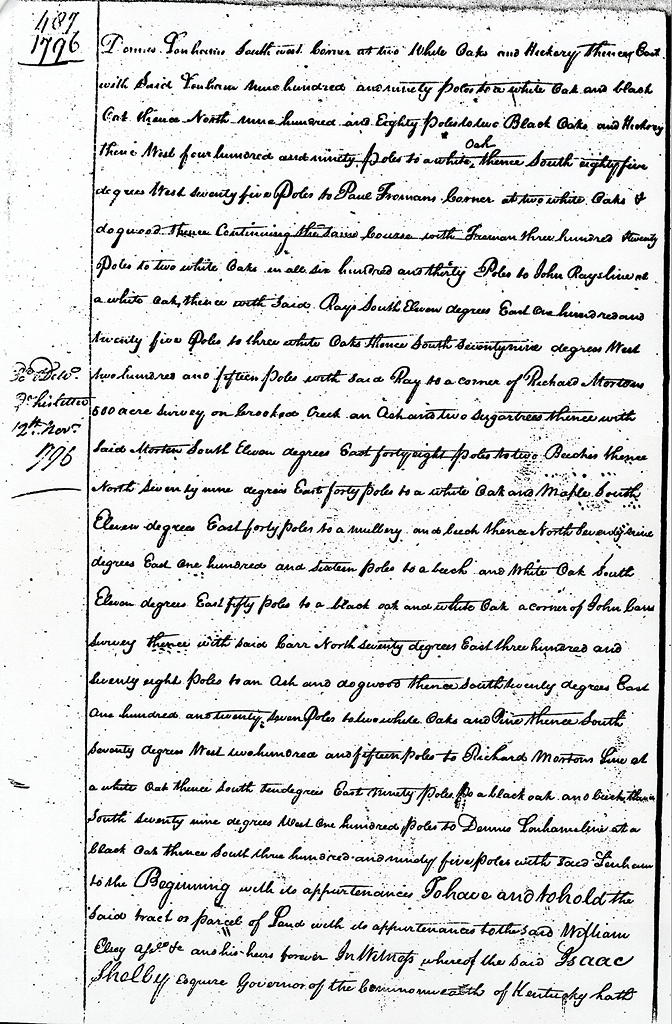 487
1796
Dennis Lonhams South west Corner at two White Oaks and Hickory thence East
with Said Lonham nine hundred and ninety Poles to a white Oak and black
Oak thence North nine hundred and Eighty Poles to two Black Oaks and Hickory
thence West four hundred and ninety poles to a white Oak thence South eighty five
degrees West seventy five Poles to Paul Fromans Corner at two white Oaks &
dogwood thence Continuing the same Course with Froman three hundred & twenty
Poles to two white Oaks in all six hundred and thirty Poles to John Rays line at
a white Oak, thence with Said Rays South Eleven degrees East One hundred and
twenty five Poles to three white Oaks thence South Seventy nine degrees West
two hundred and fifteen Poles with said Ray to a corner of Richard Mortons
500 acre Survey on Crooked Creek an Ash and two Sugartrees thence with
said Morton South Eleven degrees East forty eight poles to two Beeches thence
North Seventy nine degrees East forty Poles to a white Oak and Maple South
Eleven degrees East forty Poles to a mulbery and beech thence North Seventy nine
degrees East One hundred and sixteen Poles to a beech and White Oak South
Eleven degrees East fifty Poles to a black oak and white Oak a corner of John Carrs
Survey thence with said Carr North seventy degrees East three hundred and
seventy eight Poles to an Ash and dogwood thence South twenty degrees East
One hundred and twenty seven Poles to two white Oaks and Pine thence South
seventy degrees West two hundred and fifteen poles to Richard Mortons Line at
a white Oak thence South ten degrees East ninety Poles to a black oak and beech thence
South seventy nine degrees West One hundred Poles to Dennis Lonhams line at a
black Oak thence South three hundred and ninety five poles with said Lonham
to the Beginning with its appurtenances To have and to hold the
said tract or parcel of Land with its appurtenances to the said William
&c and his heirs forever In Witness whereof the said Isaac
Shelby Esquire Governor of the Commonwealth of Kentucky hath
12th Nov.
1796